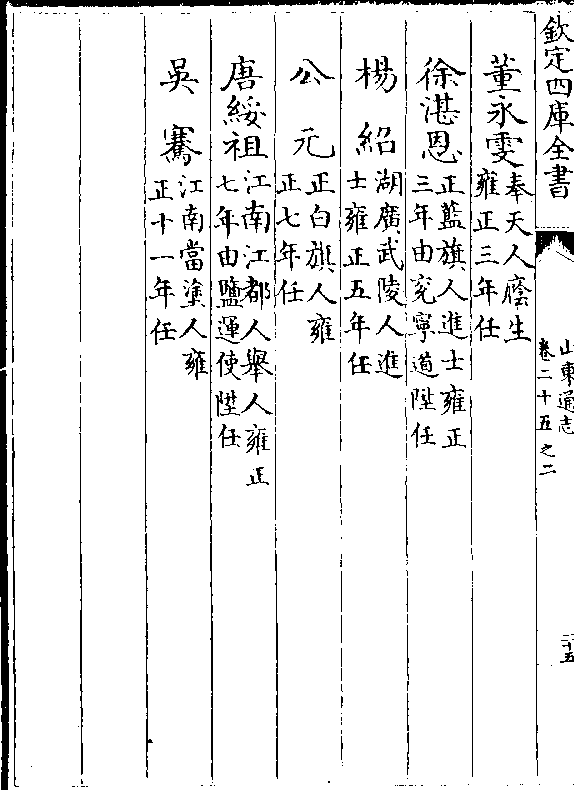 欽定四庫全書
山東通志
卷二十五之二
二十五
董永雯奉天人廕生雍正三年任
徐湛恩正藍旗人進士雍正三年由兖寧道陞任
楊紹湖廣武陵人進士雍正五年任
公元正白旗人雍正七年任
唐綏祖江南江都人舉人雍正七年由鹽運使陞任
吳騫江南當塗人雍正十一年任